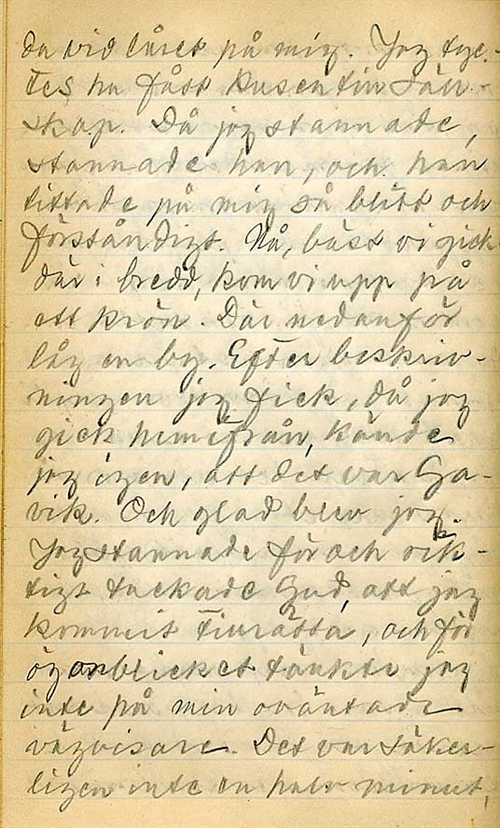 da vid låret på mig. Jag tyc-
tes ha fått rusentin sän-
skap. Då jag stannade,
stannade han, och han
tittade på mig så blitt och
förståndigt. Nå, bäst vi gick
där i bredd, kom vi upp på
ett krön. Där nedanför
låg en by. Efter beskriv-
ningen jag fick, då jag
gick hemifrån, kände
jag igen, att det var Ga-
vik. Och glad blev jag.
Jag stannade för och rik-
tigt tackade Gud, att jag
kommit tillrätta, och för
ögonblicket tänkte jag
inte på min oväntade
vägvisare. Det var säker-
ligen inte en halv minut,